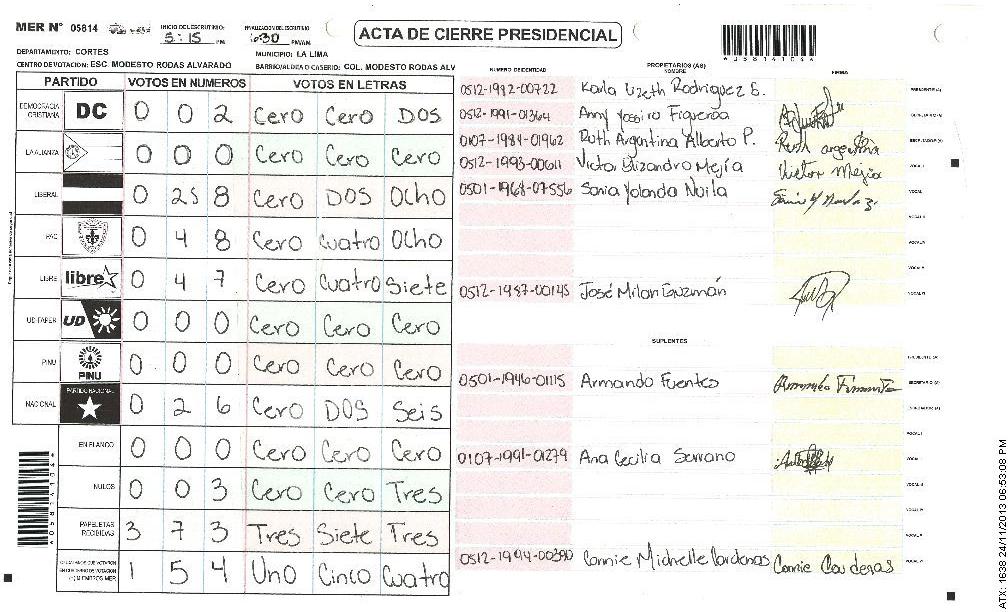 MER N° 05814
INICIO DEL ESCRUTINIO
5:15 PM
FINALIZACION DEL ESCRUTINIO
6:30 PM/AM
ACTA DE CIERRE PRESIDENCIAL
*058141044
DEPARTAMENTO: CORTES
MUNICIPIO: LA LIMA
CENTRO DE VOTACION: ESC. MODESTO RODAS ALVARADO
BARRIO/ALDEA O CASERIO: COL. MODESTO RODAS ALV
NUMERO DE IDENTIDAD
PROPIETARIOS (AS)
NOMBRE
FIRMA
PARTIDO VOTOS EN NUMEROS VOTOS EN LETRAS
DEMOCRACIA CRISTIANA DC 0 0 2 Cero Cero DOS
LA ALIANZA 0 0 0 Cero Cero Cero
LIBERAL 0 2 8 Cero DOS Ocho
PAC 0 4 8 Cero Cuatro Ocho
LIBRE libre 0 4 7 Cero Cuatro Siete
UD-FAPER UD 0 0 0 Cero Cero Cero
PINU PINU 0 0 0 Cero Cero Cero
NACIONAL PARTIDO NACIONAL 0 2 6 Cero DOS Seis
EN BLANCO 0 0 0 Cero Cero Cero
NULOS 0 0 3 Cero Cero Tres
PAPELETAS RECIBIDAS 3 7 3 Tres Siete Tres
1 5 4 Uno Cinco Cuatro
0512-1992-00722 Karla Lizeth Rodriguez S. PRESIDENTE (A)
0512-1991-01364 Anny Yossira Figueroa SECRETARIO (A)
0107-1984-01962 Ruth Argentina Alberto P. Ruth argentina ESCRUTADOR (A)
0512-1993-00611 Victor Elizandro Mejía Victor Mejia VOCAL I
0501-1968-07556 Sonia Yolanda Nuila VOCAL
0512-1987-00145 José Milan Guzmán
SUPLENTES
PRESIDENTE (A)
0501-1946-01115 Armando Fuentes SECRETARIO (A)
ESCRUTADOR (A)
0107-1991-01279 Ana Cecilia Serrano
0512-1994-00390 Connie Michelle Cardenas Connie Cardenas
ATX: 1638 24/11/2013 06:53:08 PM